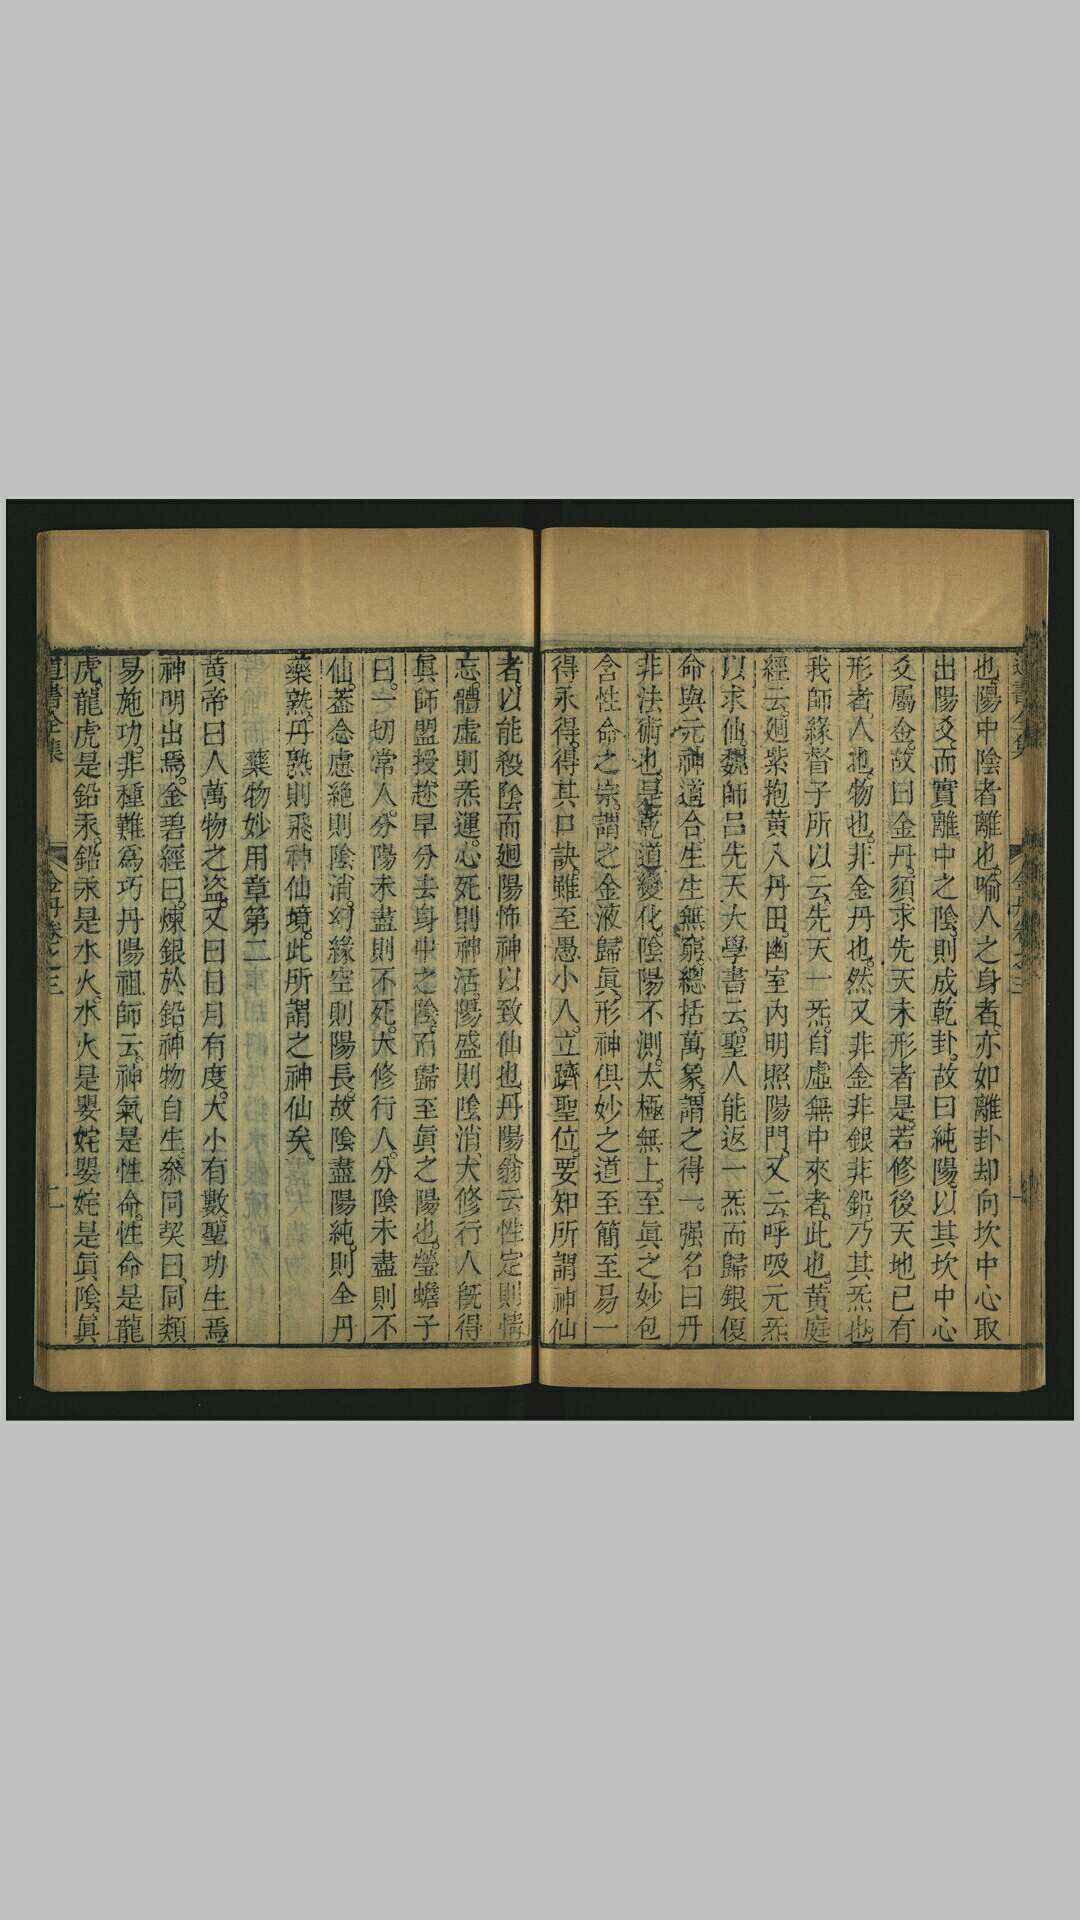 也陽中陰者離也喻人之身者亦如離卦却向坎中心取
出陽爻而實離中之陰則成乾卦故曰純陽以其坎中心
爻屬金故曰金丹須求先天未形者是若修後天地已有
形者人也物也非金丹也然又非金非銀非鉛乃其炁也
我師緣督子所以云先天一炁自虛無中來者此也黃庭
經云廻紫抱黃入丹田幽室內明照陽門又云呼吸元炁
以求仙魏師呂先天大學書云聖人能返一炁而歸銀復
命與元神道合生生無窮總括萬象謂之得一强名曰丹
非法術也是乾道變化陰陽不測太極無上至眞之妙包
含性命之崇謂之金液歸眞形神俱妙之道至簡至易一
得永得得其口訣雖至愚小人立躋聖位要知所謂神仙
者以能殺陰而廻陽怖神以致仙也丹陽翁云性定則情
忘體虛則炁運心死則神活陽盛則陰消大修行人旣得
眞師盟授趂早分去身中之陰而歸至眞之陽也瑩蟾子
曰一切常人分陽未盡則不死大修行人分陰未盡則不
仙葢念慮絕則陰消幻緣空則陽長故陰盡陽純則全丹
藥熟丹熟則飛神仙境此所謂之神仙矣
藥物妙用章第二
黃帝曰人萬物之盜又曰日月有度大小有數聖功生焉
神明出焉金碧經曰煉銀於鉛神物自生叅同契曰同類
易施功非種難爲巧丹陽祖師云神氣是性命性命是龍
虎龍虎是鉛汞鉛汞是水火水火是嬰姹嬰姹是眞陰眞
道書全集 金丹卷之三 十一